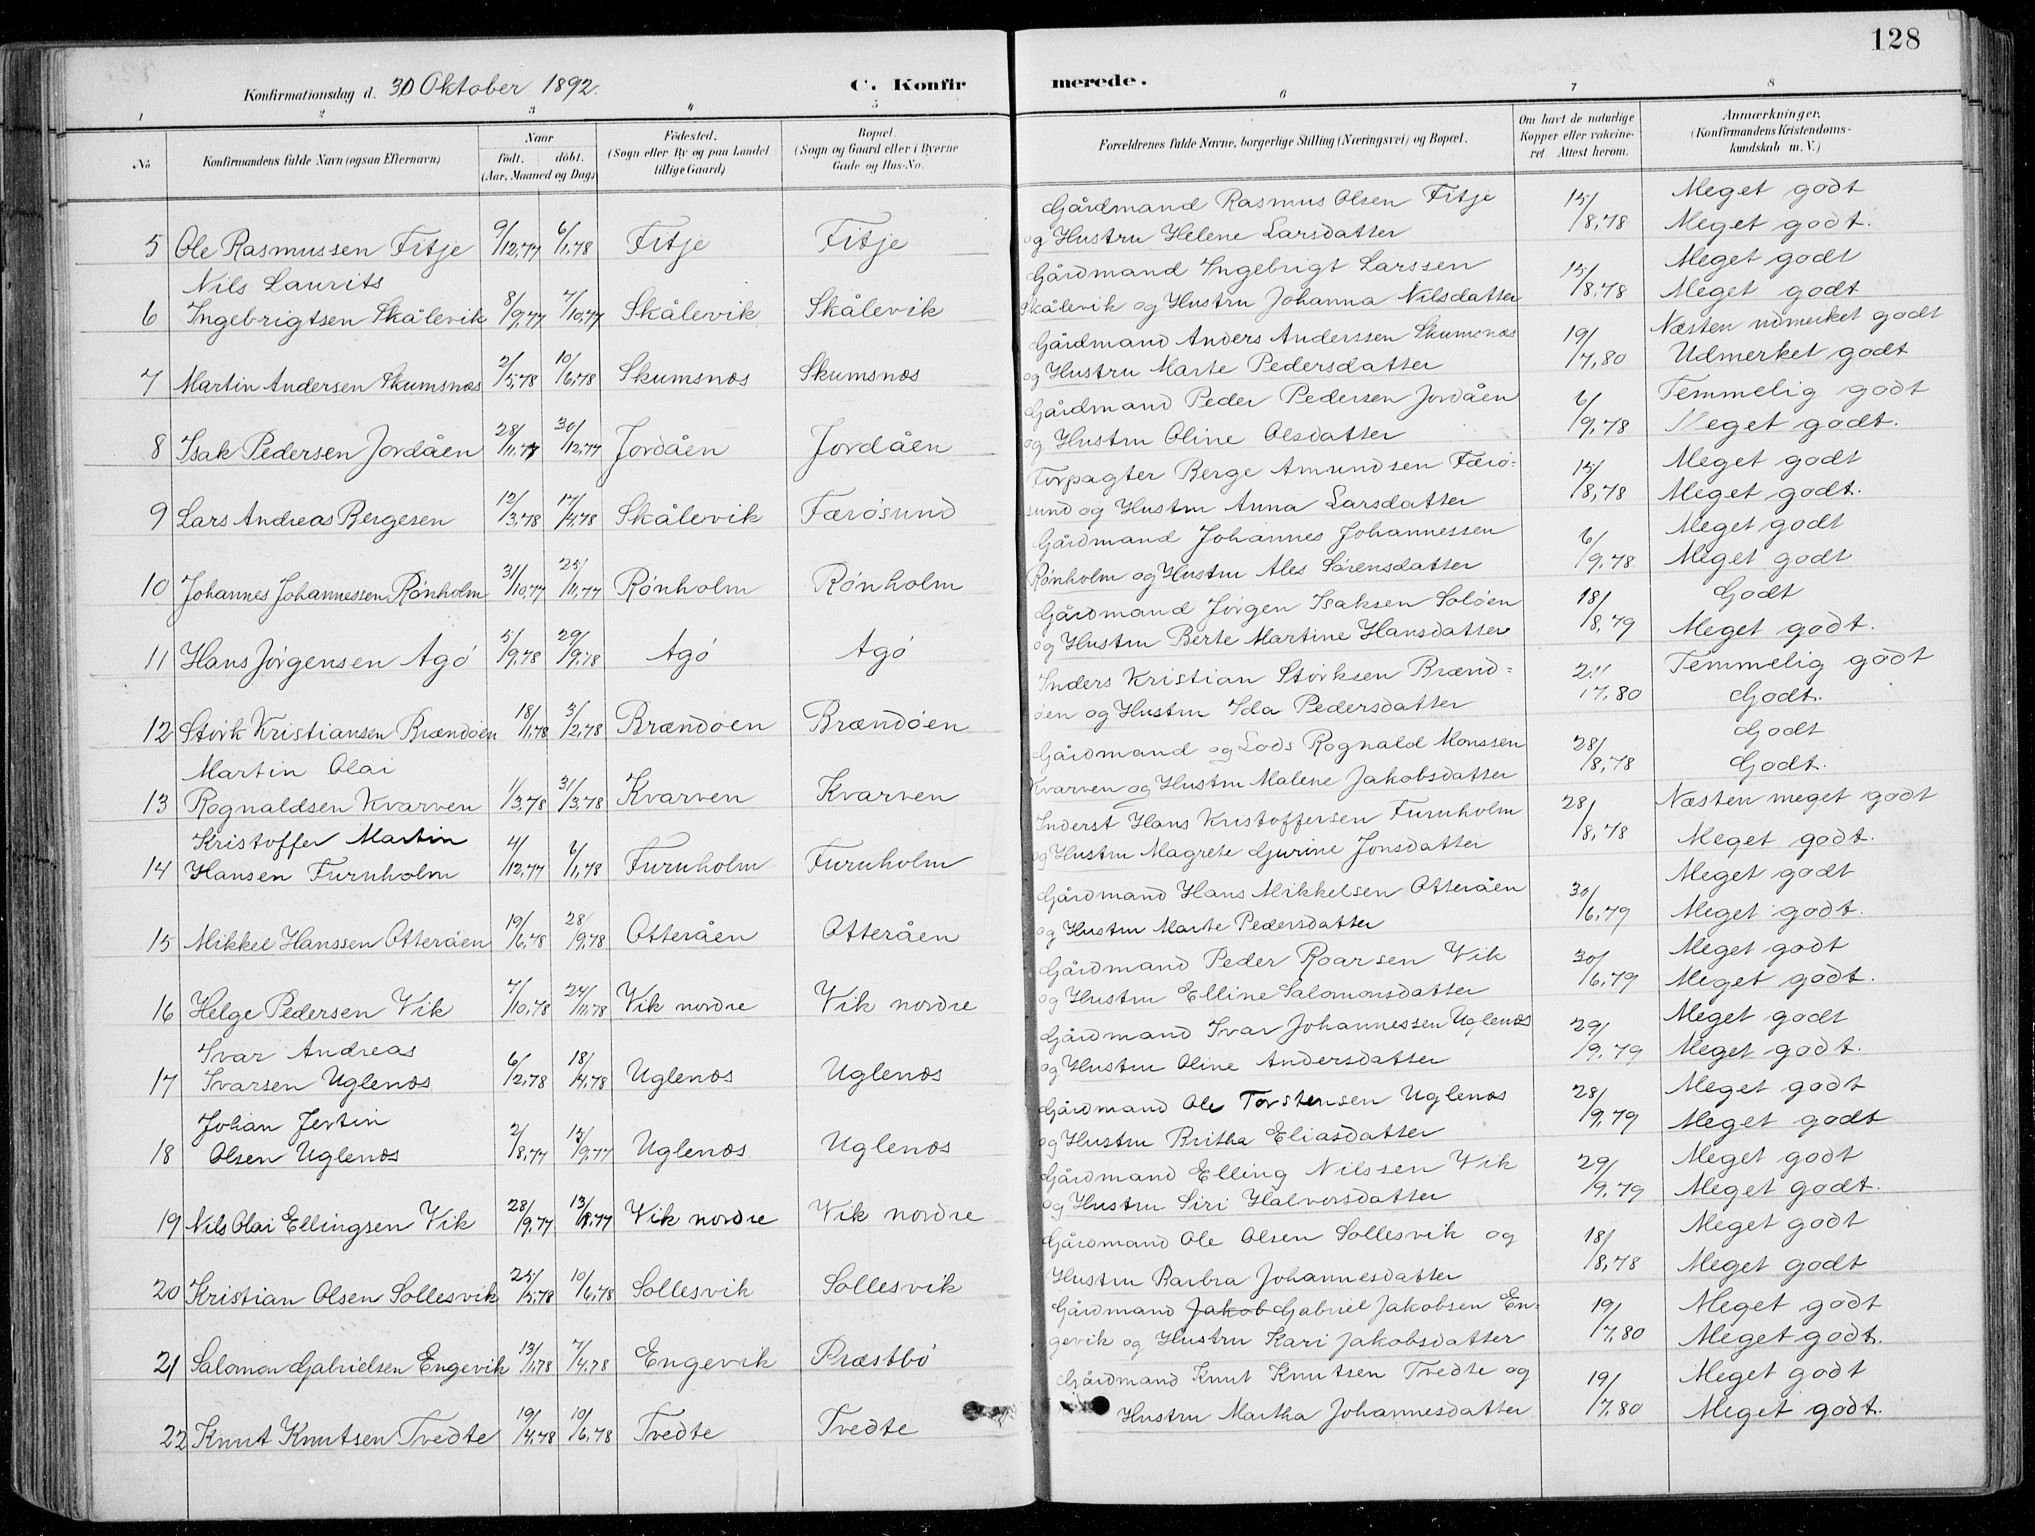 128
Konfirmationsdag d. 30 Oktober 1892.
C. Konfirmerede.
1 2 3 4 5 6 7 8
No
Konfirmandens fulde Navn (ogsaa Efternavn)
Naar
født. døbt.
(Aar, Maaned og Dag)
Fødested.
(Sogn eller By og paa Landet
tillige Gaard)
Bopæl.
(Sogn og Gaard eller i Byerne
Gade og Hus-No.
Forældrenes fulde Navne, borgerlige Stilling (Næringsvei) og Bopæl.
Om havt de naturlige
Kopper eller vakcine-
ret. Attest herom.
Anmærkninger,
(Konfirmandens Kristendoms-
kundskab m. V.)
5 Ole Rasmussen Fitje 9/12,77 6/1,78 Fitje Fitje
Gårdmand Rasmus Olsen Fitje
og Hustru Helene Larsdatter
15/8,78
Meget godt
Meget godt.
Nils Laurits
6 Ingebrigtsen Skålevik 8/9,77 7/10,77 Skålevik Skålevik
Gårdmand Ingebrigt Larssen
Skålevik og Hustru Johanna Nilsdatter
15/8,78
Meget godt
Meget godt
7 Martin Andersen Skumsnæs 2/5,78 10/6,78 Skumsnæs Skumsnæs
Gårdmand Anders Anderssen Skumsnæs
og Hustru Marte Pedersdatter
19/7,80
Næsten udmerket godt
Udmerket godt
8 Isak Pedersen Jordåen 28/11,77 30/12,77 Jordåen Jordåen
Gårdmand Peder Pedersen Jordåen
og Hustru Oline Olsdatter
6/9,78
Temmelig godt
Meget godt.
9 Lars Andreas Bergesen 12/3,78 17/4,78 Skålevik Færøsund
Forpagter Berge Amundsen Færø-
sund og Hustru Anna Larsdatter
15/8,78
Meget godt
Meget godt.
10 Johannes Johannessen Rønholm 31/10,77 25/11,77 Rønholm Rønholm
Gårdmand Johannes Johannessen
Rønholm og Hustru Ales Sørensdatter
6/9,78
Meget godt
Meget godt
11 Hans Jørgensen Agø 5/9,78 29/9,78 Agø Agø
Gårdmand Jørgen Isaksen Soløen
og Hustru Berte Martine Hansdatter
18/8,79
Godt
Meget godt.
12 Størk Kristiansen Brændøen 18/1,78 3/2,78 Brændøen Brændøen
Inders Kristian Størksen Brænd-
øen og Hustru Ida Pedersdatter
17,80
Temmelig godt
Godt.
Martin Olai
13 Rognaldsen Kvarven 1/3,78 31/3,78 Kvarven Kvarven
Gårdmand og Lods Rognald Monssen
Kvarven og Hustru Malene Jakobsdatter
28/8,78
Godt
Godt.
Kristoffer Martin
14 Hansen Furuholm 4/12,77 6/1,78 Furuholm Furuholm
Inderst Hans Kristoffersen Furuholm
og Hustru Magrete Gurine Jonsdatter
28/8,78
Næsten meget godt
Meget godt.
15 Mikkel Hanssen Otteråen 19/6,78 28/9,78 Otteråen Otteråen
Gårdmand Hans Mikkelsen Otteråen
og Hustru Marte Pedersdatter
30/6,79
Meget godt
Meget godt.
16 Helge Pedersen Vik 7/10,78 24/11,78 Vik nordre Vik nordre
Gårdmand Peder Roarsen Vik
og Hustru Elline Salomonsdatter
30/6,79
Meget godt
Meget godt.
Ivar Andreas
17 Ivarsen Uglenæs 6/2,78 18/4,78 Uglenæs Uglenæs
Gårdmand Ivar Johannessen Uglenæs
og Hustru Oline Andersdatter
29/9,79
Meget godt
Meget godt.
Johan Jertin
18 Olsen Uglenæs 2/8,77 15/9,77 Uglenæs Uglenæs
Gårdmand Ole Torstensen Uglenæs
og Hustru Britha Eliasdatter
28/9,79
Meget godt
Meget godt
19 Nils Olai Ellingsen Vik 28/9,77 Vik nordre Vik nordre
Gårdmand Elling Nilssen Vik
og Hustru Siri Halvorsdatter
29/9,79
Meget godt
Meget godt.
20 Kristian Olsen Sollesvik 25/5,78 10/6,78 Sollesvik Sollesvik
Gårdmand Ole Olsen Sollesvik og
Hustru Barbra Johannesdatter
18/8,78
Meget godt
Meget godt
21 Salomon Gabrielsen Engevik 13/1,78 7/4,78 Engevik Præstbø
Gårdmand Jakob Gabriel Jakobsen En-
gevik og Hustru Kari Jakobsdatter
19/7,80
Meget godt
Meget godt.
22 Knut Knutsen Tvedte 19/4,78 10/6,78 Tvedte Tvedte
Gårdmand Knut Knutsen Tvedte og
Hustru Martha Johannesdatter
19/7,80
Meget godt
Meget godt.